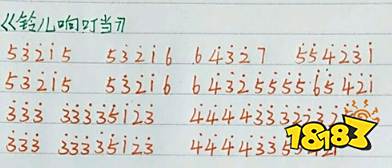 《铃儿响叮当》
5 3̇ 2̇ 1̇ 5 5 3̇ 2̇ 1̇ 6 6 4̇ 3̇ 2̇ 7 5̇ 5̇ 4̇ 2̇ 3̇ 1̇
5 3̇ 2̇ 1̇ 5 5 3̇ 2̇ 1̇ 6 6 4̇ 3̇ 2̇ 5̇ 5̇ 5̇ 5̇ 6̇ 5̇ 4̇ 2̇ 1̇
3̇ 3̇ 3̇ 3̇ 3̇ 3̇ 3̇ 5̇ 1̇ 2̇ 3̇ 4̇ 4̇ 4̇ 4̇ 3̇ 3̇ 3̇
3̇ 3̇ 3̇ 3̇ 3̇ 3̇ 3̇ 5̇ 1̇ 2̇ 3̇ 4̇ 4̇ 4̇ 4̇ 3̇ 3̇
18183